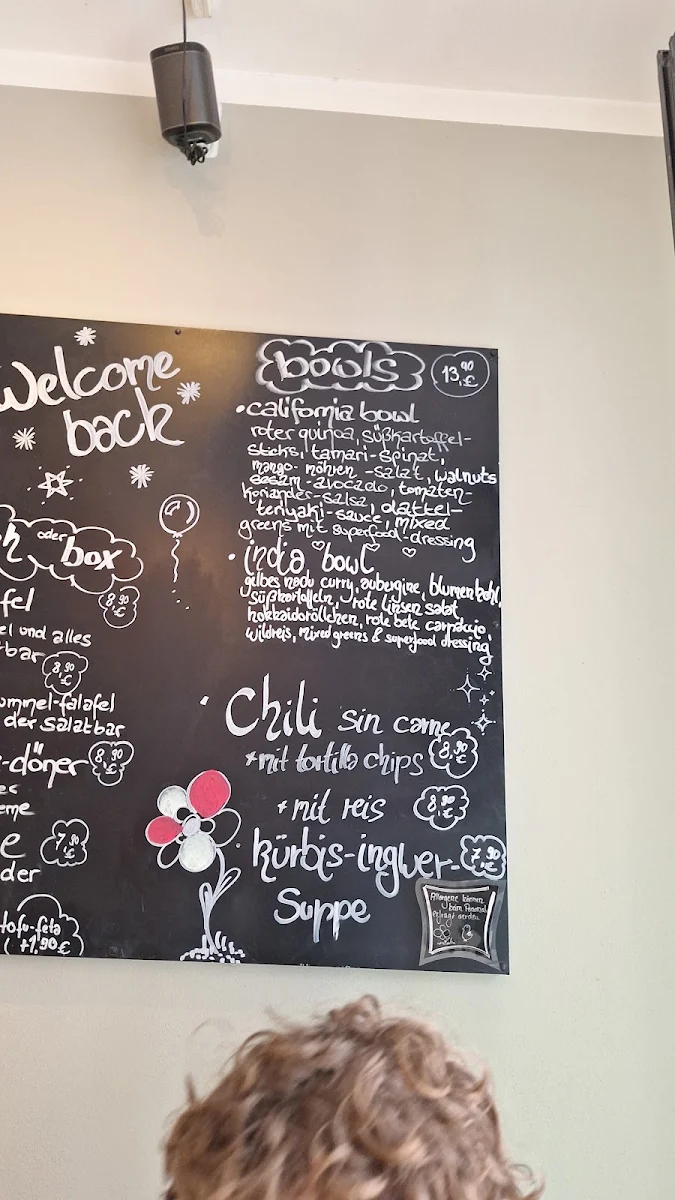 Welcome
back
oder
box
8,90 €
fel
el und alles
bar
8,90 €
ummel-falafel
der Salatbar
-döner
8,90 €
er
eme
e
7,90 €
der
tofu-feta
(+1,90 €
bowls
13,90 €
• california bowl
roter quinoa, süßkartoffel-
sticks, tamari-spinat,
mango-möhren-salat, walnuts
sesam-avocado, tomaten-
koriander-salsa, dattel-
teriyaki-sauce, mixed
greens mit superfood-dressing
• india bowl
gelbes nadu curry, aubergine, blumenkohl,
süßkartoffeln, rote linsen salat
hokkaidoröllchen, rote bete carpaccio,
wildreis, mixed greens & superfood dressing
• Chili sin carne
+mit tortilla chips
8,90 €
+ mit reis
8,90 €
kürbis-ingwer-
7,90 €
Suppe
Allergene können
beim Personal
erfragt werden